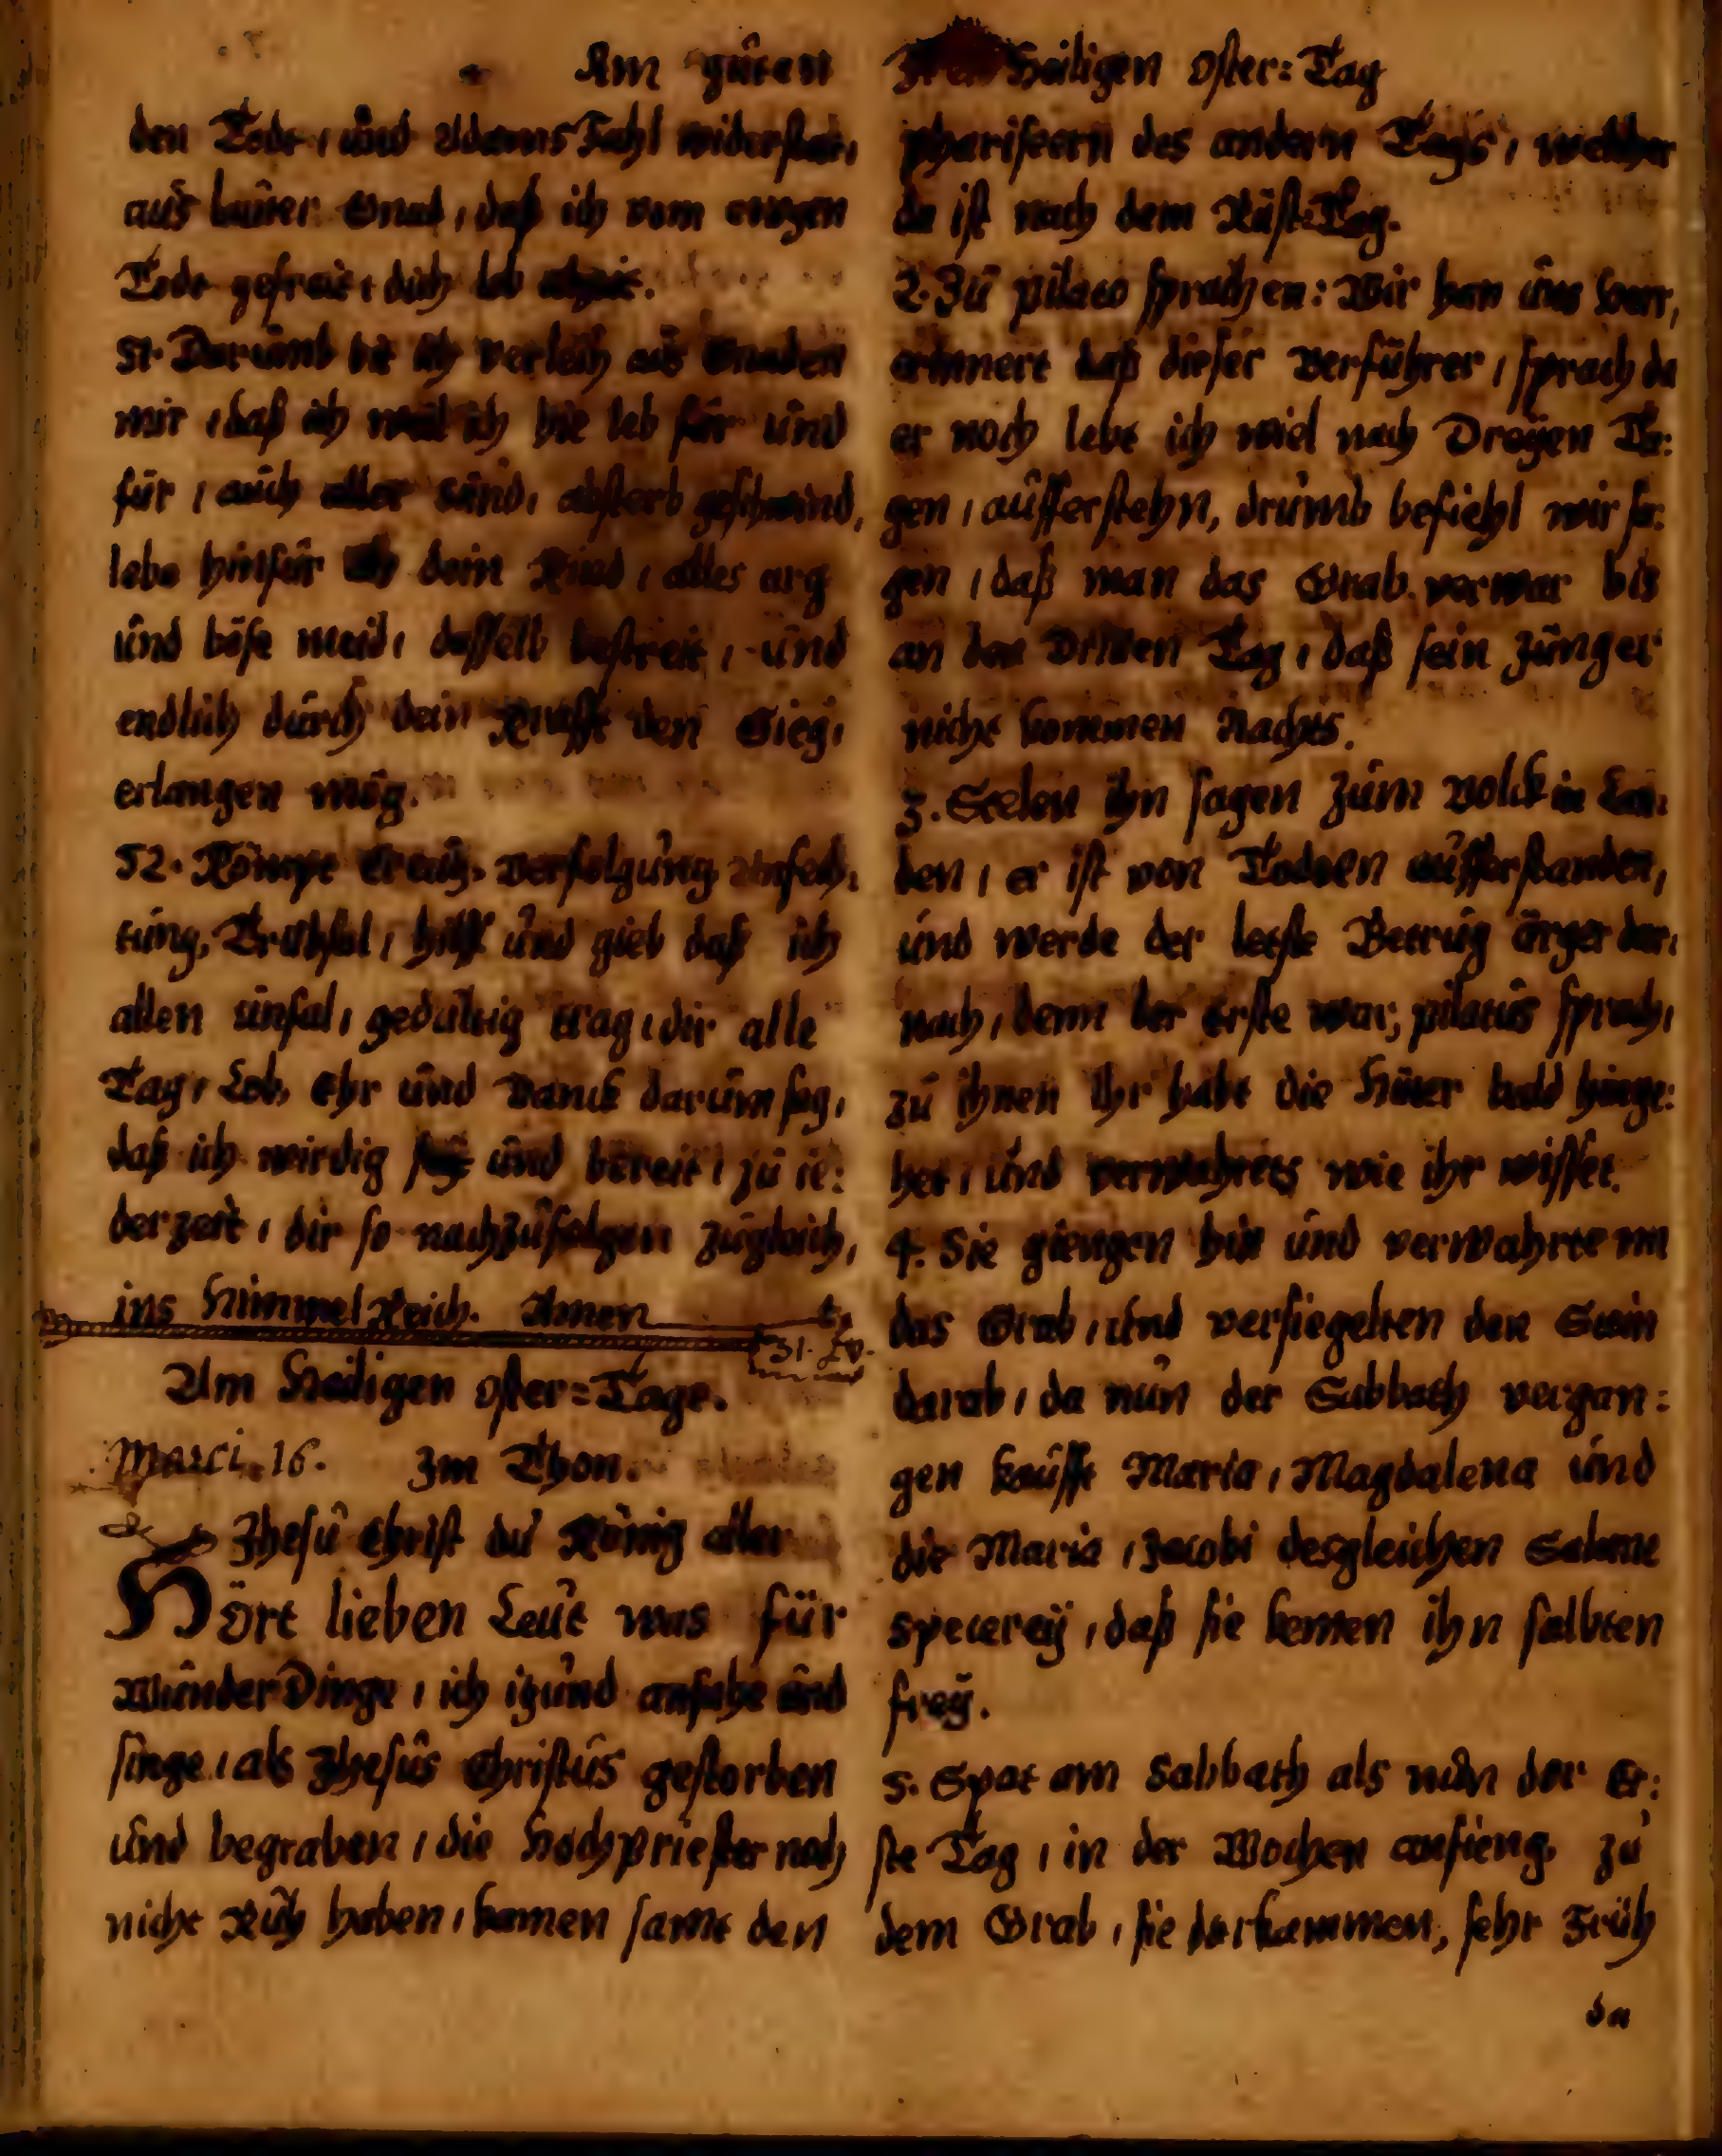 Am guten
den Tode, und Adams Fahl widerstat,
aus lauter Gnad, daß ich vom ewgen
Tode gefreit, dich lob
51. Darumb bit ich verleih aus Gnaden
mir, daß ich weil ich hie leb für und
für, auch aller sünd, absterb geschwind,
lebe hinfür dein Kind, alles arg
und böse meid, dasselb bestreit, und
endlich durch dein Krafft den Sieg,
erlangen mög.
52. Kömpt Creutz, Verfolgung Anfech,
tung, Trübsal, hilff und gieb daß ich
allen unfal, gedultig trag, dir alle
Tag, Lob, Ehr und Danck darum sag,
daß ich wirdig sey und bereit, zu ie:
derzeit, dir so nachzufolgen zugleich,
ins HimmelReich. Amen
31.
Am Heiligen oster=Tage.
Marci. 16. Im Thon.
Jhesu Christ du König aller
Hört lieben Leut was für
WunderDinge, ich itzund anfahe und
singe, als Jhesus Christus gestorben
und begraben, die Hochpriester noch
nicht Ruh haben, kamen samt den
Heiligen oster=Tag
phariseern des andern Tags, welcher
da ist nach dem RüstTag.
2. Zu pilato sprachen: Wir han uns Herr,
erinnert daß dieser Verführer, sprach da
er noch lebt ich wiel nach Dreyen Ta:
gen, aufferstehn, drumb befiehl wir sa:
gen, daß man das Grab verwar bis
an den Dritten Tag, daß sein Jünger
nicht kommen Nachts.
3. Stelen ihn sagen zum Volck in Lan,
den, er ist von Todten aufferstanden,
und werde der letste Betrug ärger dar,
nach, denn der Erste war, pilatus sprach,
zu ihnen Ihr habt die Hüter bald hinge:
het, und verwahrets wie ihr wisset.
4. Sie giengen hin und verwahrten
das Grab, und versiegelten den Stein
darab, da nun der Sabbath vergan:
gen kaufft Maria, Magdalena und
die Maria, Jacobi desgleichen Salome
Specerey, daß sie kemen ihn salbten
frey.
5. Spat am Sabbath als nun der Er:
ste Tag, in der Wochen anfieng, zu
dem Grab, sie darkammen, sehr Früh
da